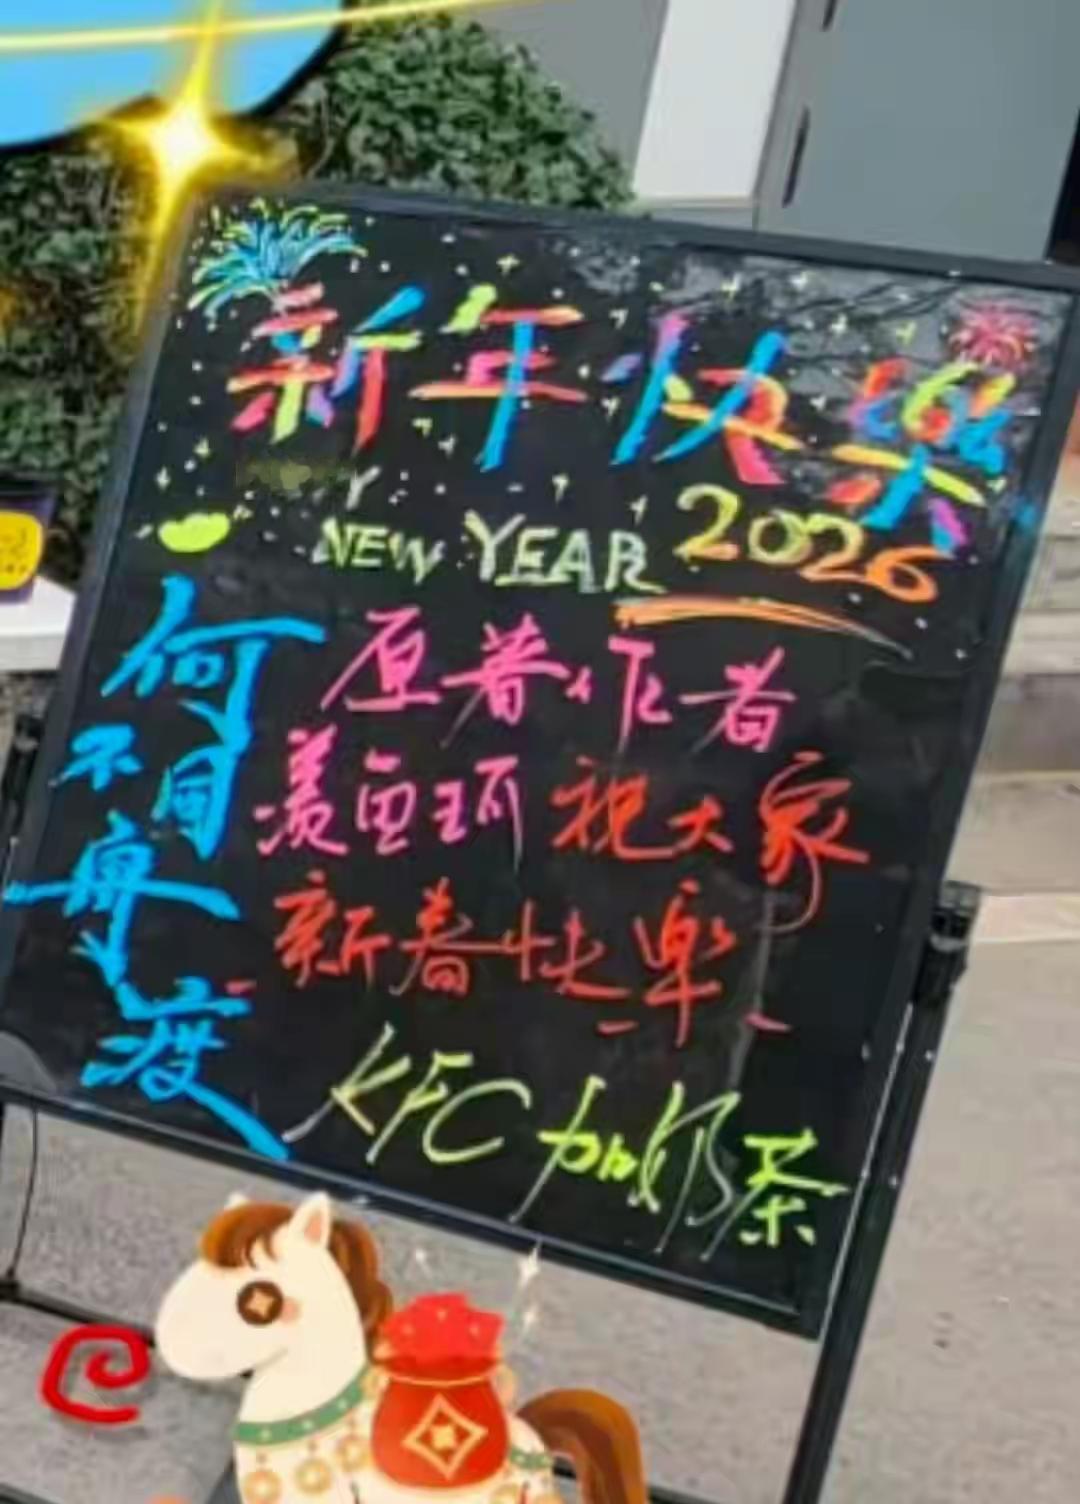 新年快樂
NEW YEAR 2026
何不同舟渡
原著作者
羡鱼珂 祝大家
新春快楽
KFC 加奶茶